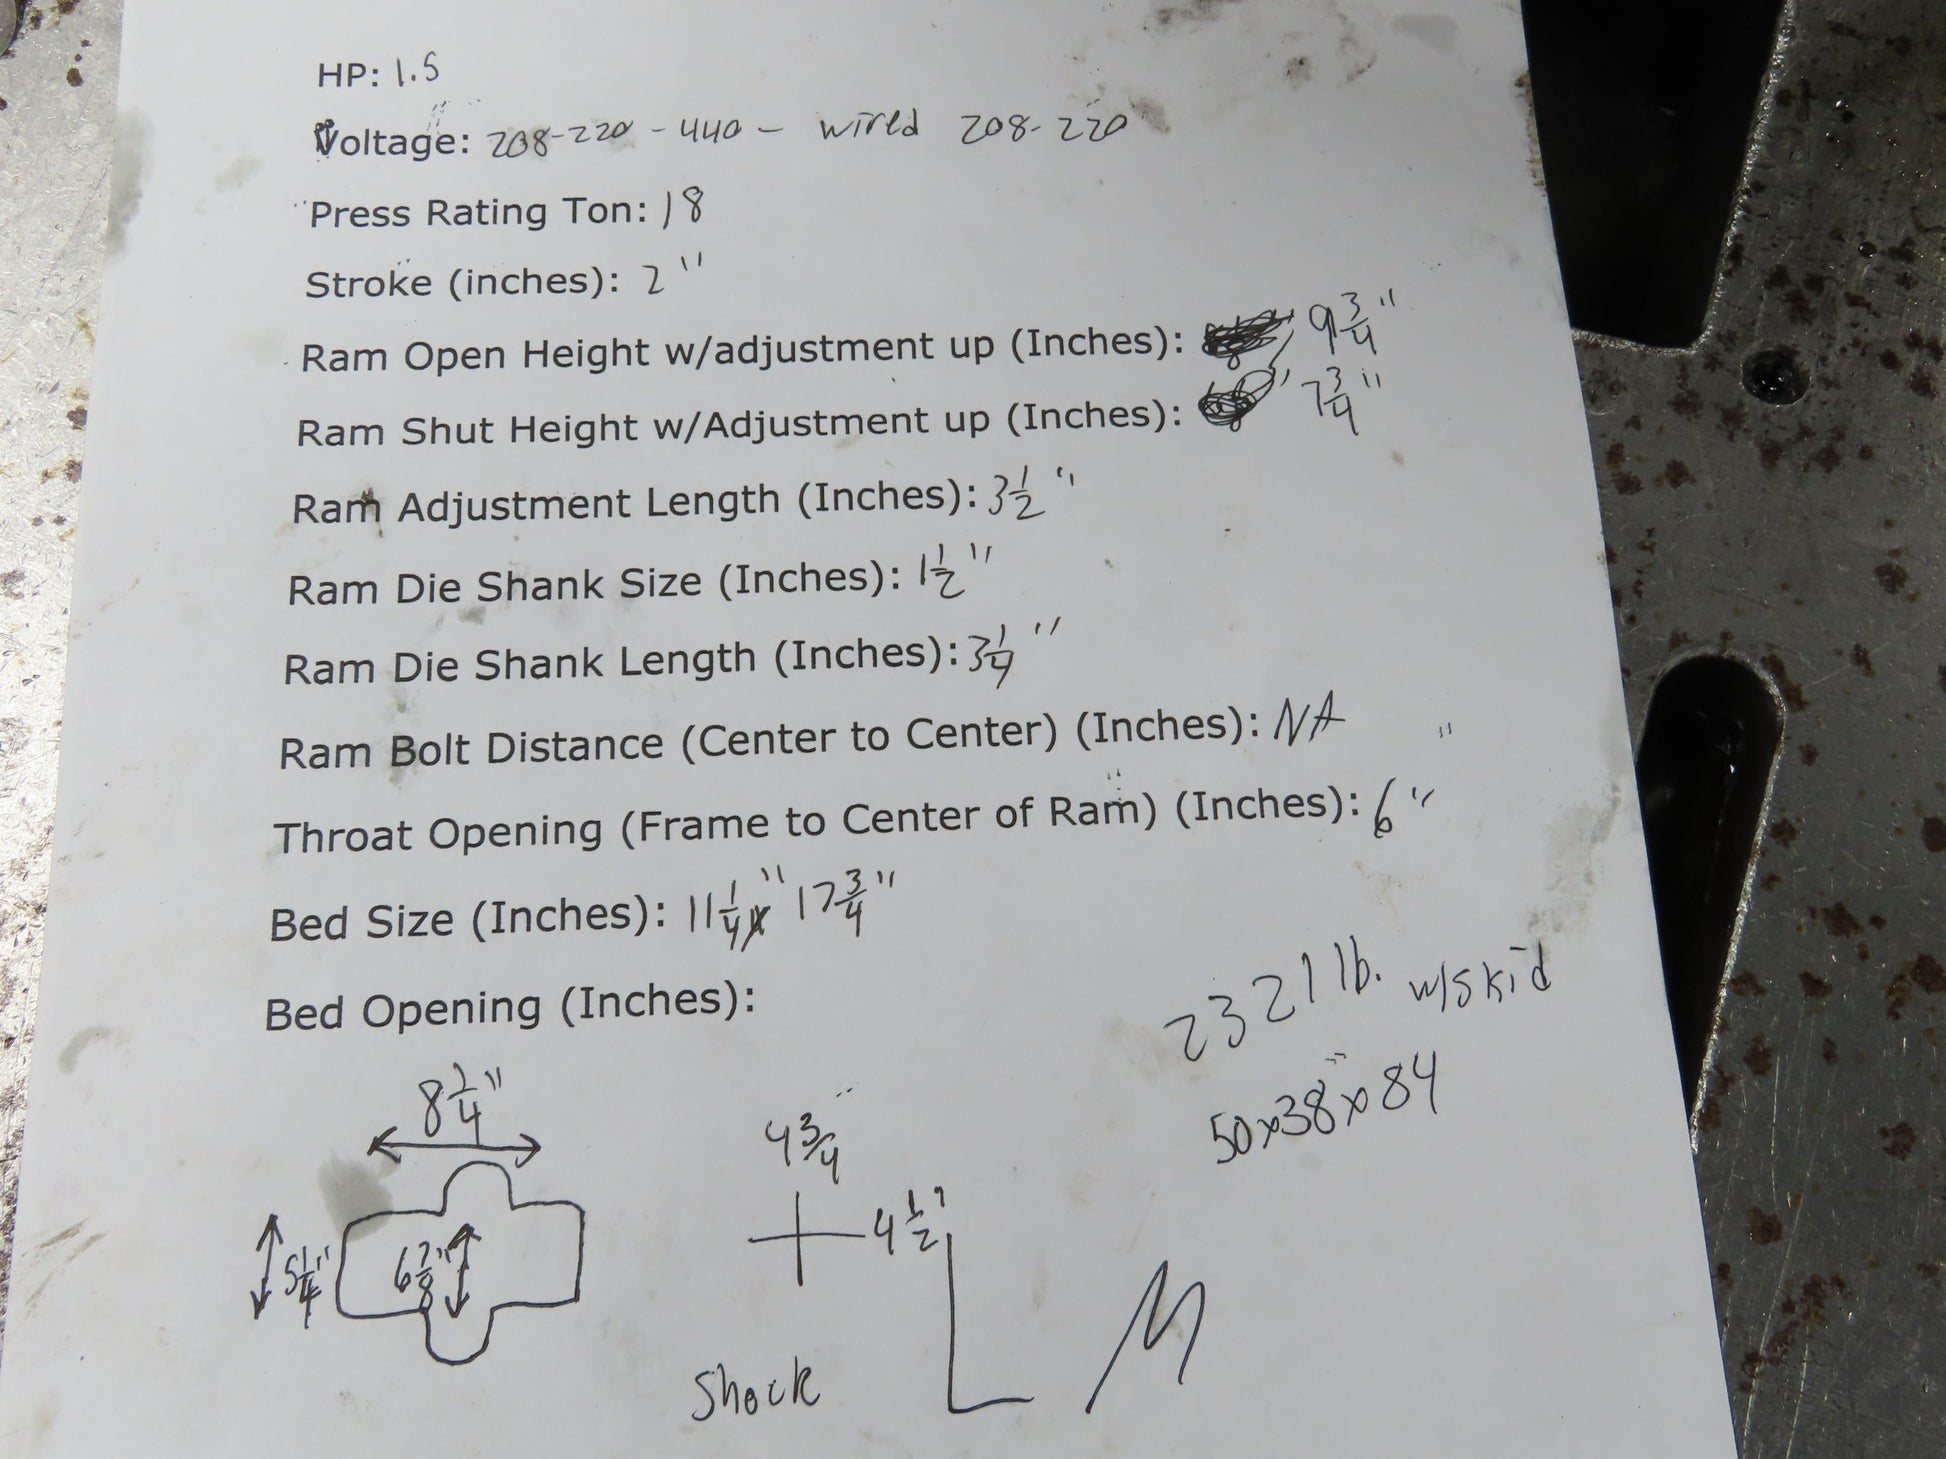 HP: 1.5
Voltage: 208-220-440 - wired 208-220
Press Rating Ton: 18
Stroke (inches): 2"
Ram Open Height w/adjustment up (Inches): 9 3/4"
Ram Shut Height w/Adjustment up (Inches): 7 3/4"
Ram Adjustment Length (Inches): 3 1/2"
Ram Die Shank Size (Inches): 1 1/2"
Ram Die Shank Length (Inches): 3 1/4"
Ram Bolt Distance (Center to Center) (Inches): NA "
Throat Opening (Frame to Center of Ram) (Inches): 6"
Bed Size (Inches): 11 1/4" x 17 3/4"
Bed Opening (Inches):
2321 lb. w/skid
50x38x84
8 1/4"
4 3/4
4 1/2"
5 1/4"
6 7/8"
Shock
L M